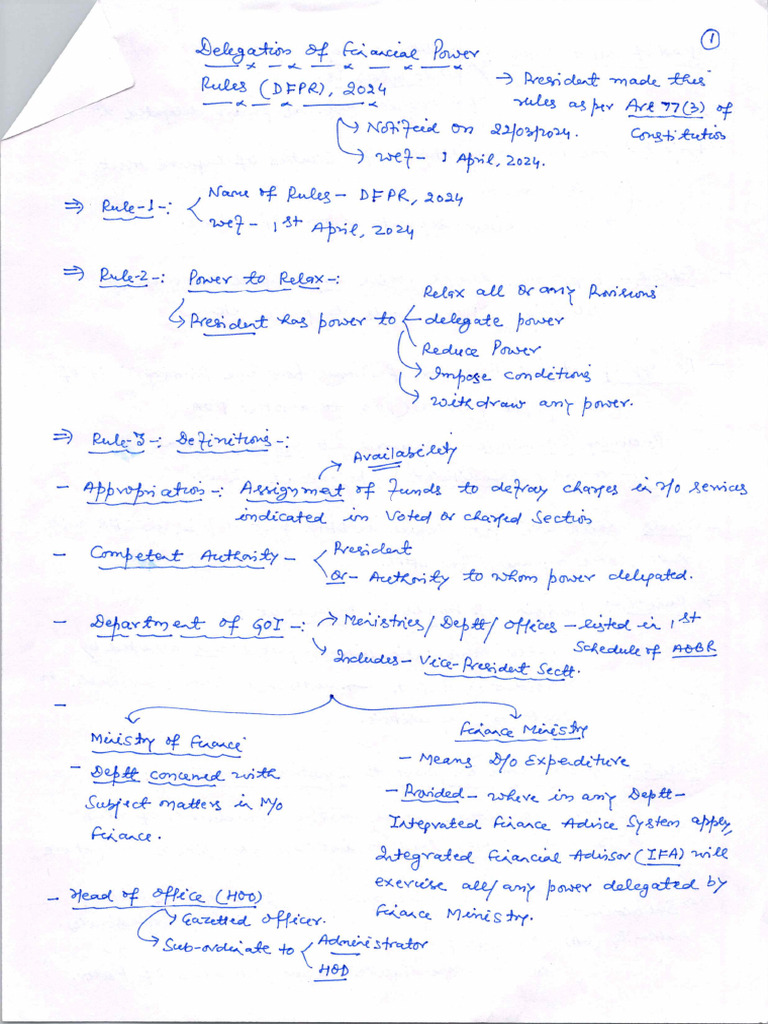 1
Delegation of Financial Power
Rules (DFPR), 2024
→ President made this
rules as per Art 77(3) of
Constitution
→ Notified on 22/03/2024.
→ wef - 1 April, 2024.
⇒ Rule-1-:
Name of Rules - DFPR, 2024
wef - 1st April, 2024
⇒ Rule-2-: Power to Relax-:
→ President has power to
Relax all or any Provisions
delegate power
Reduce Power
→ Impose conditions
→ Withdraw any power.
⇒ Rule-3-: Definitions-:
→ Availability
- Appropriation-: Assignment of Funds to defray charges in r/o services
indicated in Voted or charged Section
- Competent Authority -
President
Or - Authority to whom power delegated.
- Department of GOI-: → Ministries/Deptt/Offices - listed in 1st
Schedule of AOBR
→ Includes - Vice-President Sectt.
-
Ministry of Finance
- Deptt concerned with
Subject matters in M/o
Finance.
Finance Ministry
- Means D/o Expenditure
- Provided - where in any Deptt -
Integrated Finance Advice System apply,
Integrated Financial Advisor (IFA) will
exercise all/any power delegated by
Finance Ministry.
- Head of Office (HOO)
→ Gazetted Officer.
→ Sub-ordinate to
Administrator
HOD